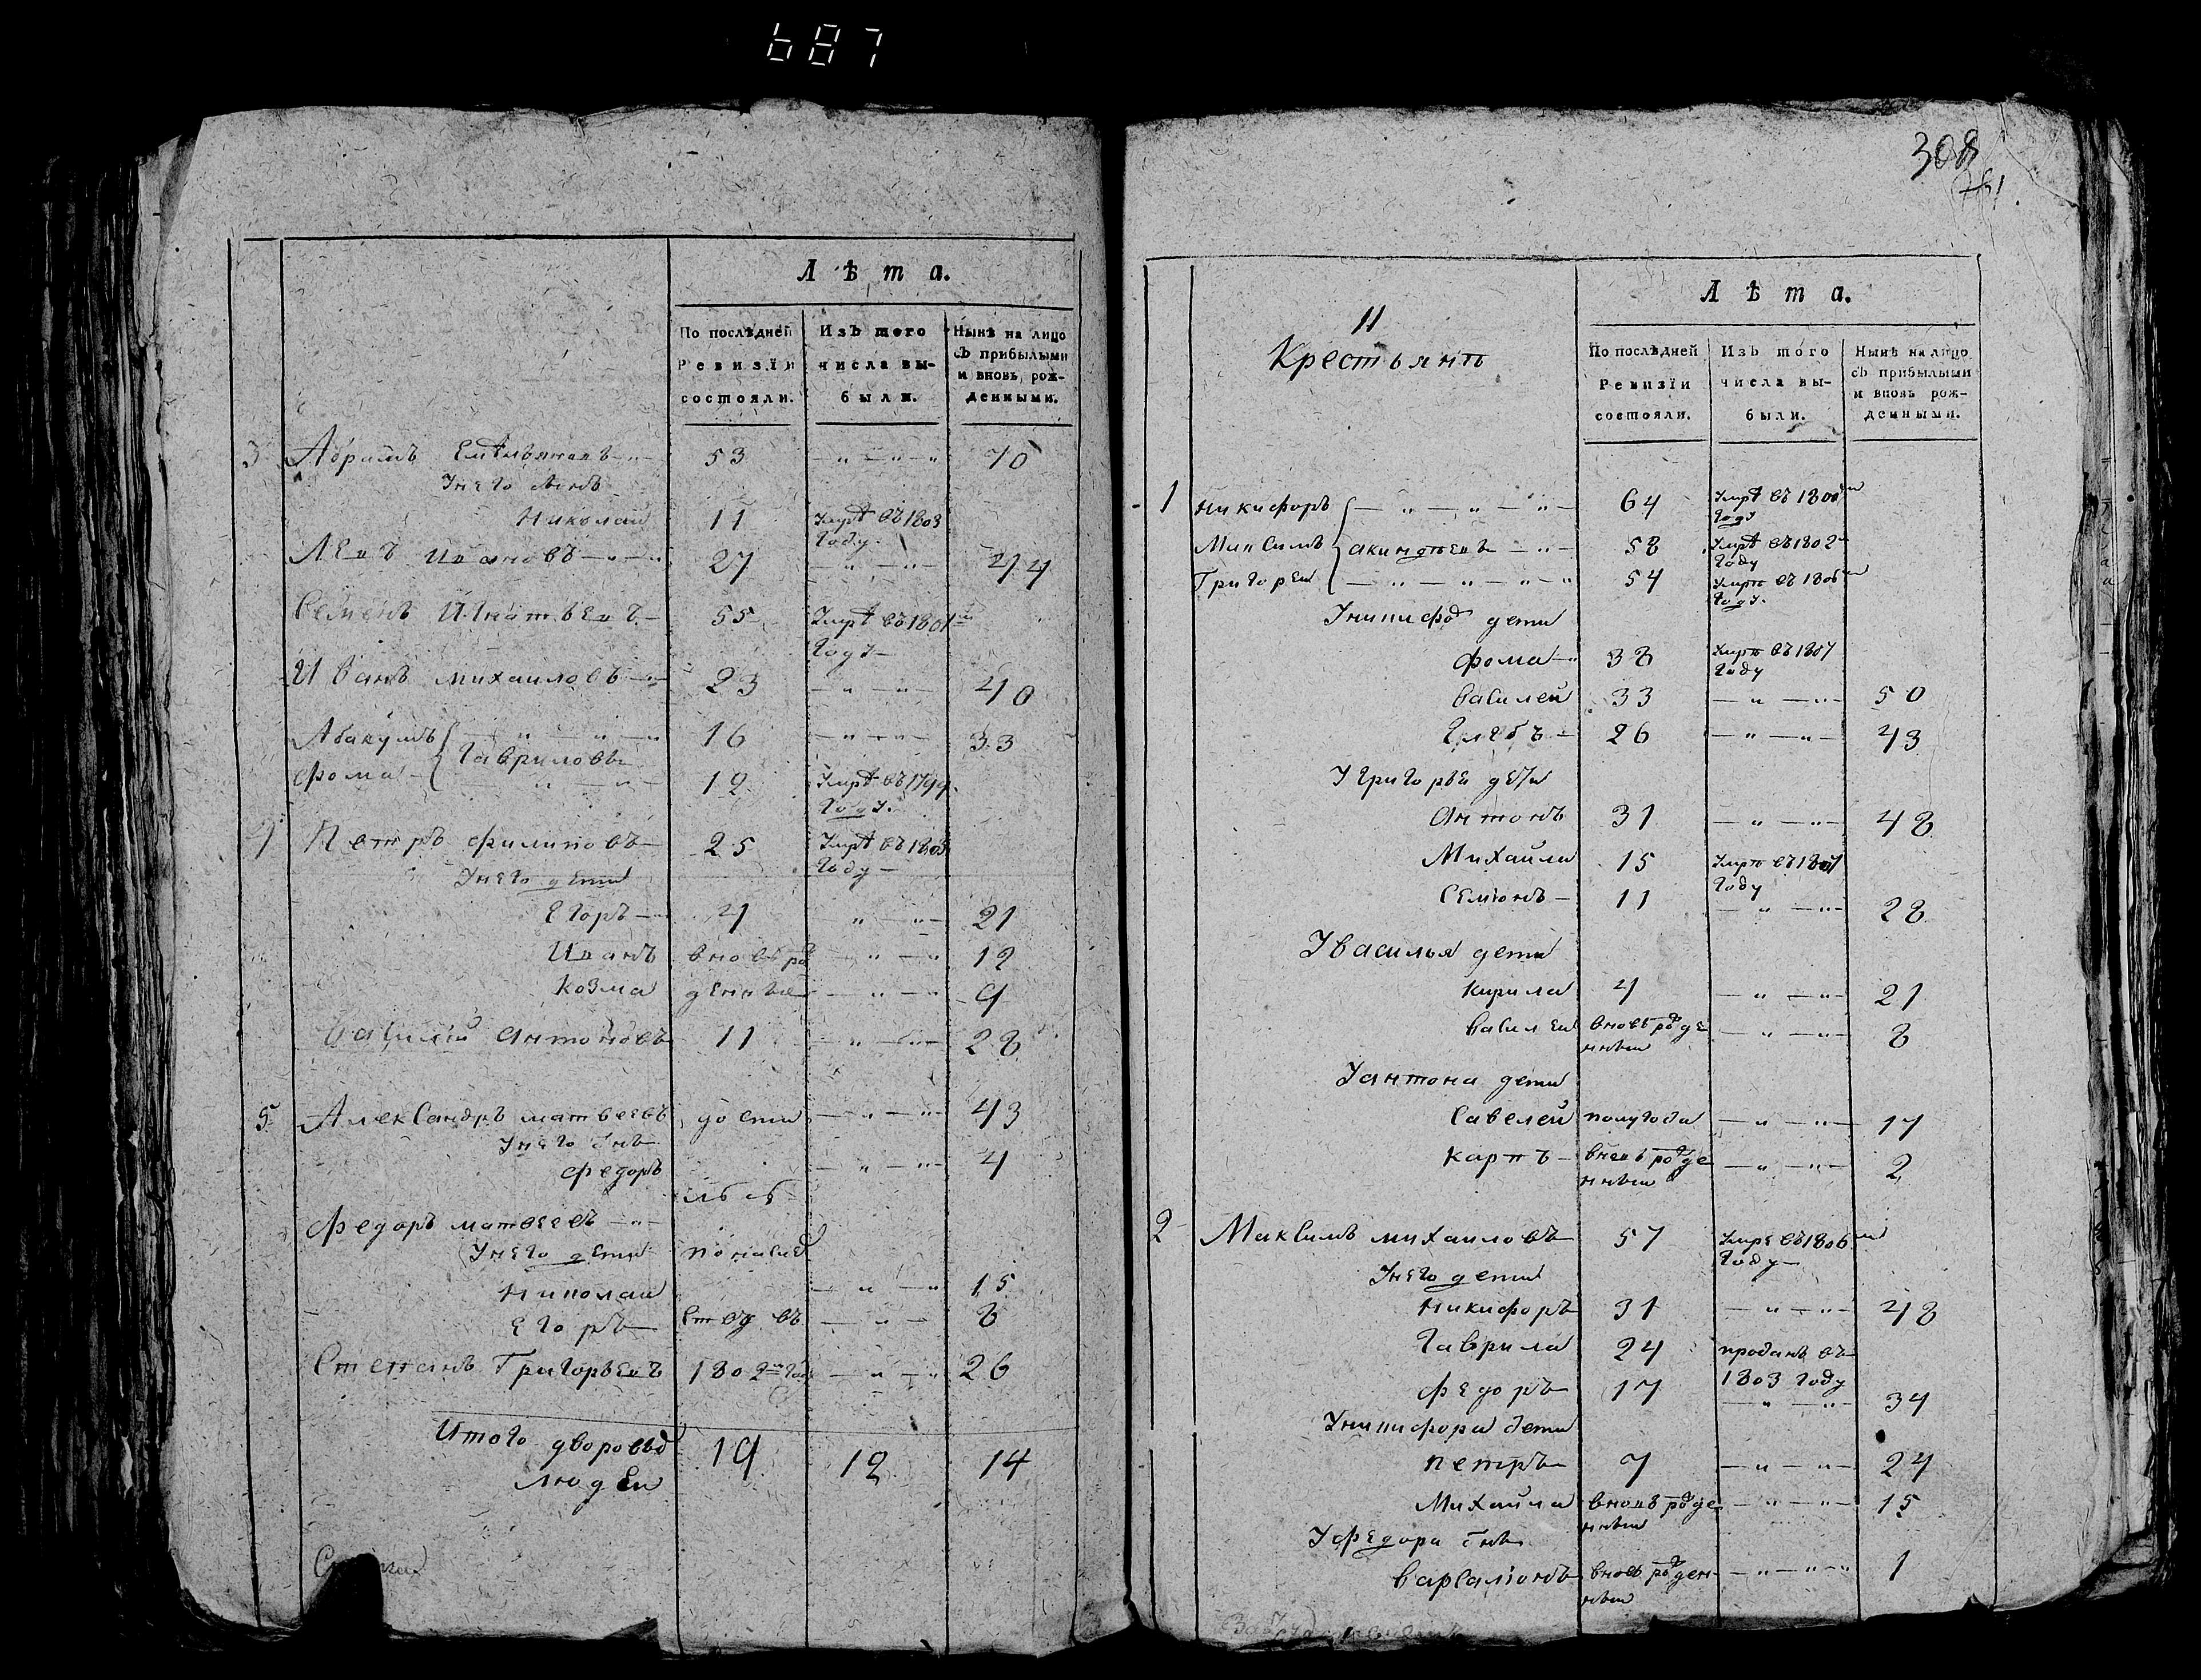 687
Лѣта.
По послѣдней Ревизїи состояли.
Изъ того числа выбыли.
Нынѣ на лицо съ прибылыми и вновь рожденными.
3 Абрамъ 53 — „ — „ — „ 70
У него сынъ
Николай 11 Умрѣ въ 1803
году.
Левъ Ивановъ — „ — „ 27 — „ — „ — 44
Семенъ Игнатьевъ — 55 Умрѣ въ 1801м
году —
Иванъ Михаиловъ — „ — 23 — „ — „ — 40
Абакумъ { — „ — „ — „ 16 — „ — „ — 33
Гавриловы
Фома — { — „ — „ 12 Умрѣ въ 1799
году.
4 Петръ Филиповъ — 25 Умрѣ въ 1803
году —
У него дети
Егоръ — „ 4 „ — „ — 21
Иванъ вновь ро — „ — „ 12
Козма денные — „ — „ 9
Василий Антоновъ 11 — „ — „ — 28
5. Александръ Матвеевъ — „ — „ — 43
У него сынъ
Федоръ — „ — „ — 4
Федоръ Матвеевъ — „ —
У него дети
Николаи — „ — „ 15
Егоръ — — „ — 8
Степанъ Григорьевъ 1802м году — „ — „ 26
Итого дворовых 19 12 14
людей
308
Лѣта.
11
Крестьянъ
По послѣдней Ревизїи состояли.
Изъ того числа выбыли.
Нынѣ на лицо съ прибылыми и вновь рожденными.
1 Никифоръ { — „ — „ — „ — 64 Умрѣ въ 1800м
году
Максимъ { Акинфъевы — „ — 58 Умрѣ въ 1802
году
Григореи { — „ — „ — „ — „ 54 Умрѣ въ 1806м
году.
У Никифо дети
Фома — „ 38 Умрѣ въ 1807
году
Василеи 33 — „ — „ — 50
Глебъ — 26 — „ — „ — 43
У Григорья дети
Антонъ 31 — „ — „ — 48
Михаила 15 Умрѣ въ 1807
году
Семионъ — 11 — „ — „ — 28
У Василья дети
Кирила 4 — „ — „ — 21
Василеи вновь рожде
нныи — „ — „ — 8
У Антона дети
Савелеи полугода — „ — „ — 17
Карпъ — вновь рожде
нныи — „ — „ — 2
2 Максимъ Михаиловъ 57 Умре въ 1806м
году —
У него дети
Никифоръ 31 — „ — „ — 48
Гаврила 24 проданъ въ
1803 году
Федоръ 17 — „ — „ — 34
У Никифора дети
Петръ 7 — „ — „ — 24
Михаила вновь рожде
нныи — „ — „ — 15
У Федора сынъ
Варфаломъ вновь рожден
ныи — „ — „ — „ 1